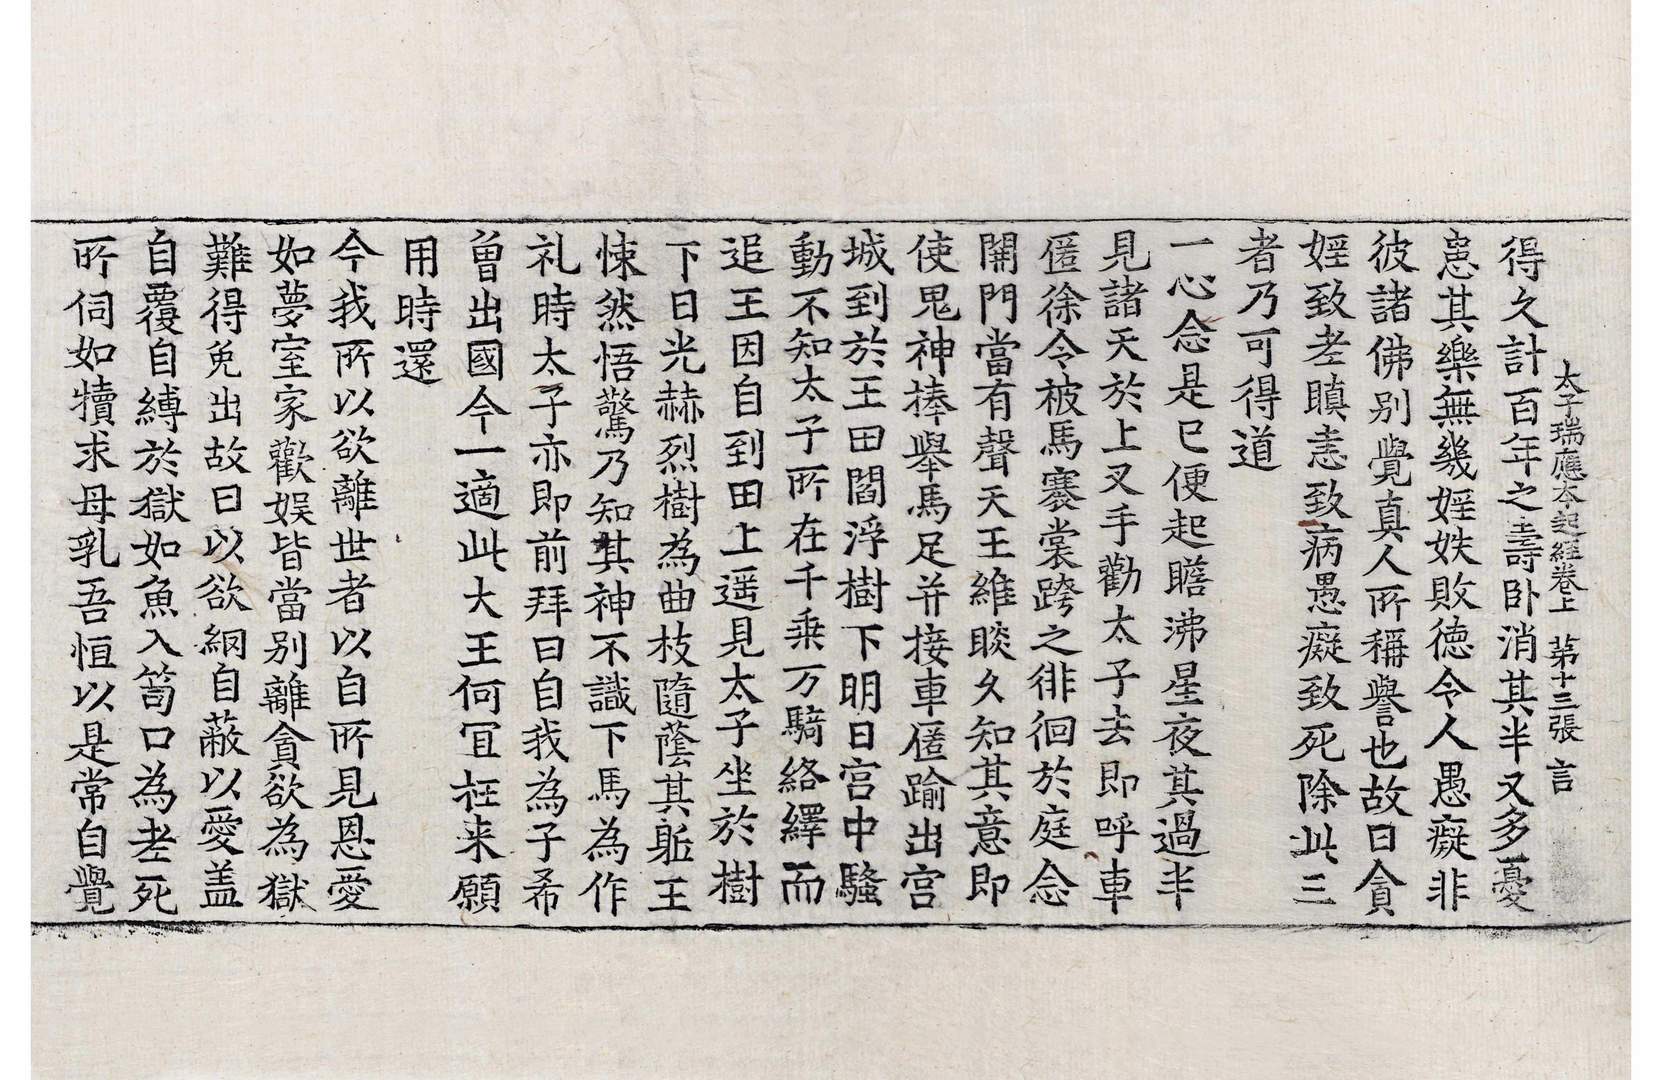 太子瑞應本起經卷上　第十三張　言
得久計百年之壽卧消其半又多憂
患其樂無幾婬妷敗德令人愚癡非
彼諸佛別覺真人所稱譽也故曰貪
婬致老瞋恚致病愚癡致死除此三
者乃可得道
一心念是已便起瞻沸星夜其過半
見諸天於上叉手勸太子去即呼車
匿徐令被馬褰裳跨之徘徊於庭念
開門當有聲天王維睒久知其意即
使鬼神捧舉馬足并接車匿踰出宮
城到於王田閻浮樹下明日宮中騷
動不知太子所在千乘万騎絡繹而
追王因自到田上遥見太子坐於樹
下日光赫烈樹為曲枝隨蔭其軀王
悚然悟驚乃知其神不識下馬為作
礼時太子亦即前拜曰自我為子希
曾出國今一適此大王何冝枉来願
用時還
今我所以欲離世者以自所見恩愛
如夢室家歡娛皆當別離貪欲為獄
難得免出故曰以欲網自蔽以愛盖
自覆自縛於獄如魚入笱口為老死
所伺如犢求母乳吾恒以是常自覺